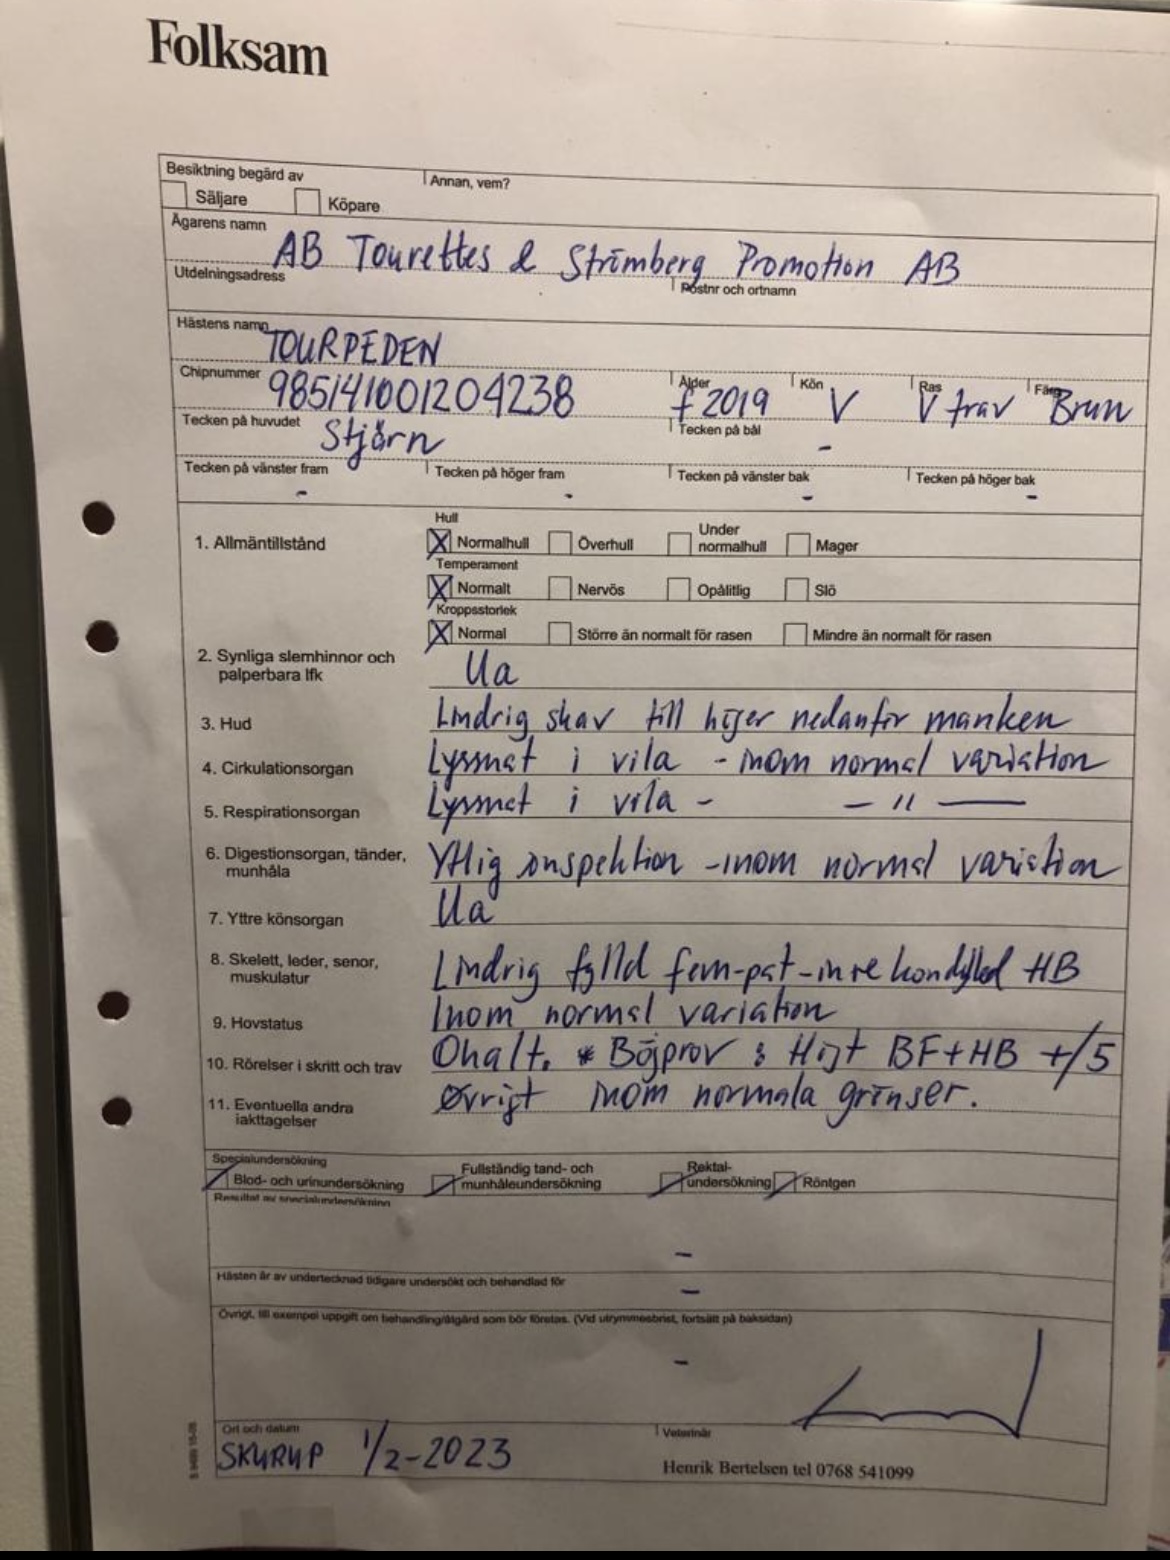 Folksam
Besiktning begärd av
Annan, vem?
Säljare Köpare
Ägarens namn
AB Tourettes & Strömberg Promotion AB
Utdelningsadress
Postnr och ortnamn
Hästens namn
TOURPEDEN
Chipnummer Ålder Kön Ras Färg
985141001204238 f 2019 V V trav Brun
Tecken på huvudet Tecken på bål
Stjärn -
Tecken på vänster fram Tecken på höger fram Tecken på vänster bak Tecken på höger bak
- - - -
Hull
1. Allmäntillstånd X Normalhull Överhull Under normalhull Mager
Temperament
X Normalt Nervös Opålitlig Slö
Kroppsstorlek
X Normal Större än normalt för rasen Mindre än normalt för rasen
2. Synliga slemhinnor och
palperbara lfk
Ua
3. Hud Lindrig skav till höger nedanför manken
4. Cirkulationsorgan Lyssnat i vila - inom normal variation
5. Respirationsorgan Lyssnat i vila - — " —
6. Digestionsorgan, tänder,
munhåla
Ytlig inspektion - inom normal variation
7. Yttre könsorgan Ua
8. Skelett, leder, senor,
muskulatur
Lindrig fylld fem-pat-inre kondylled HB
9. Hovstatus Inom normal variation
10. Rörelser i skritt och trav Ohalt. * Böjprov : Höjt BF+HB +/5
11. Eventuella andra
iakttagelser
Øvrigt inom normala gränser.
Specialundersökning
Blod- och urinundersökning Fullständig tand- och munhåleundersökning Rektal-undersökning Röntgen
Resultat av specialundersökning
-
Hästen är av undertecknad tidigare undersökt och behandlad för
-
Övrigt, till exempel uppgift om behandling/åtgärd som bör företas. (Vid utrymmesbrist, fortsätt på baksidan)
-
Ort och datum Veterinär
SKURUP 1/2-2023
Henrik Bertelsen tel 0768 541099